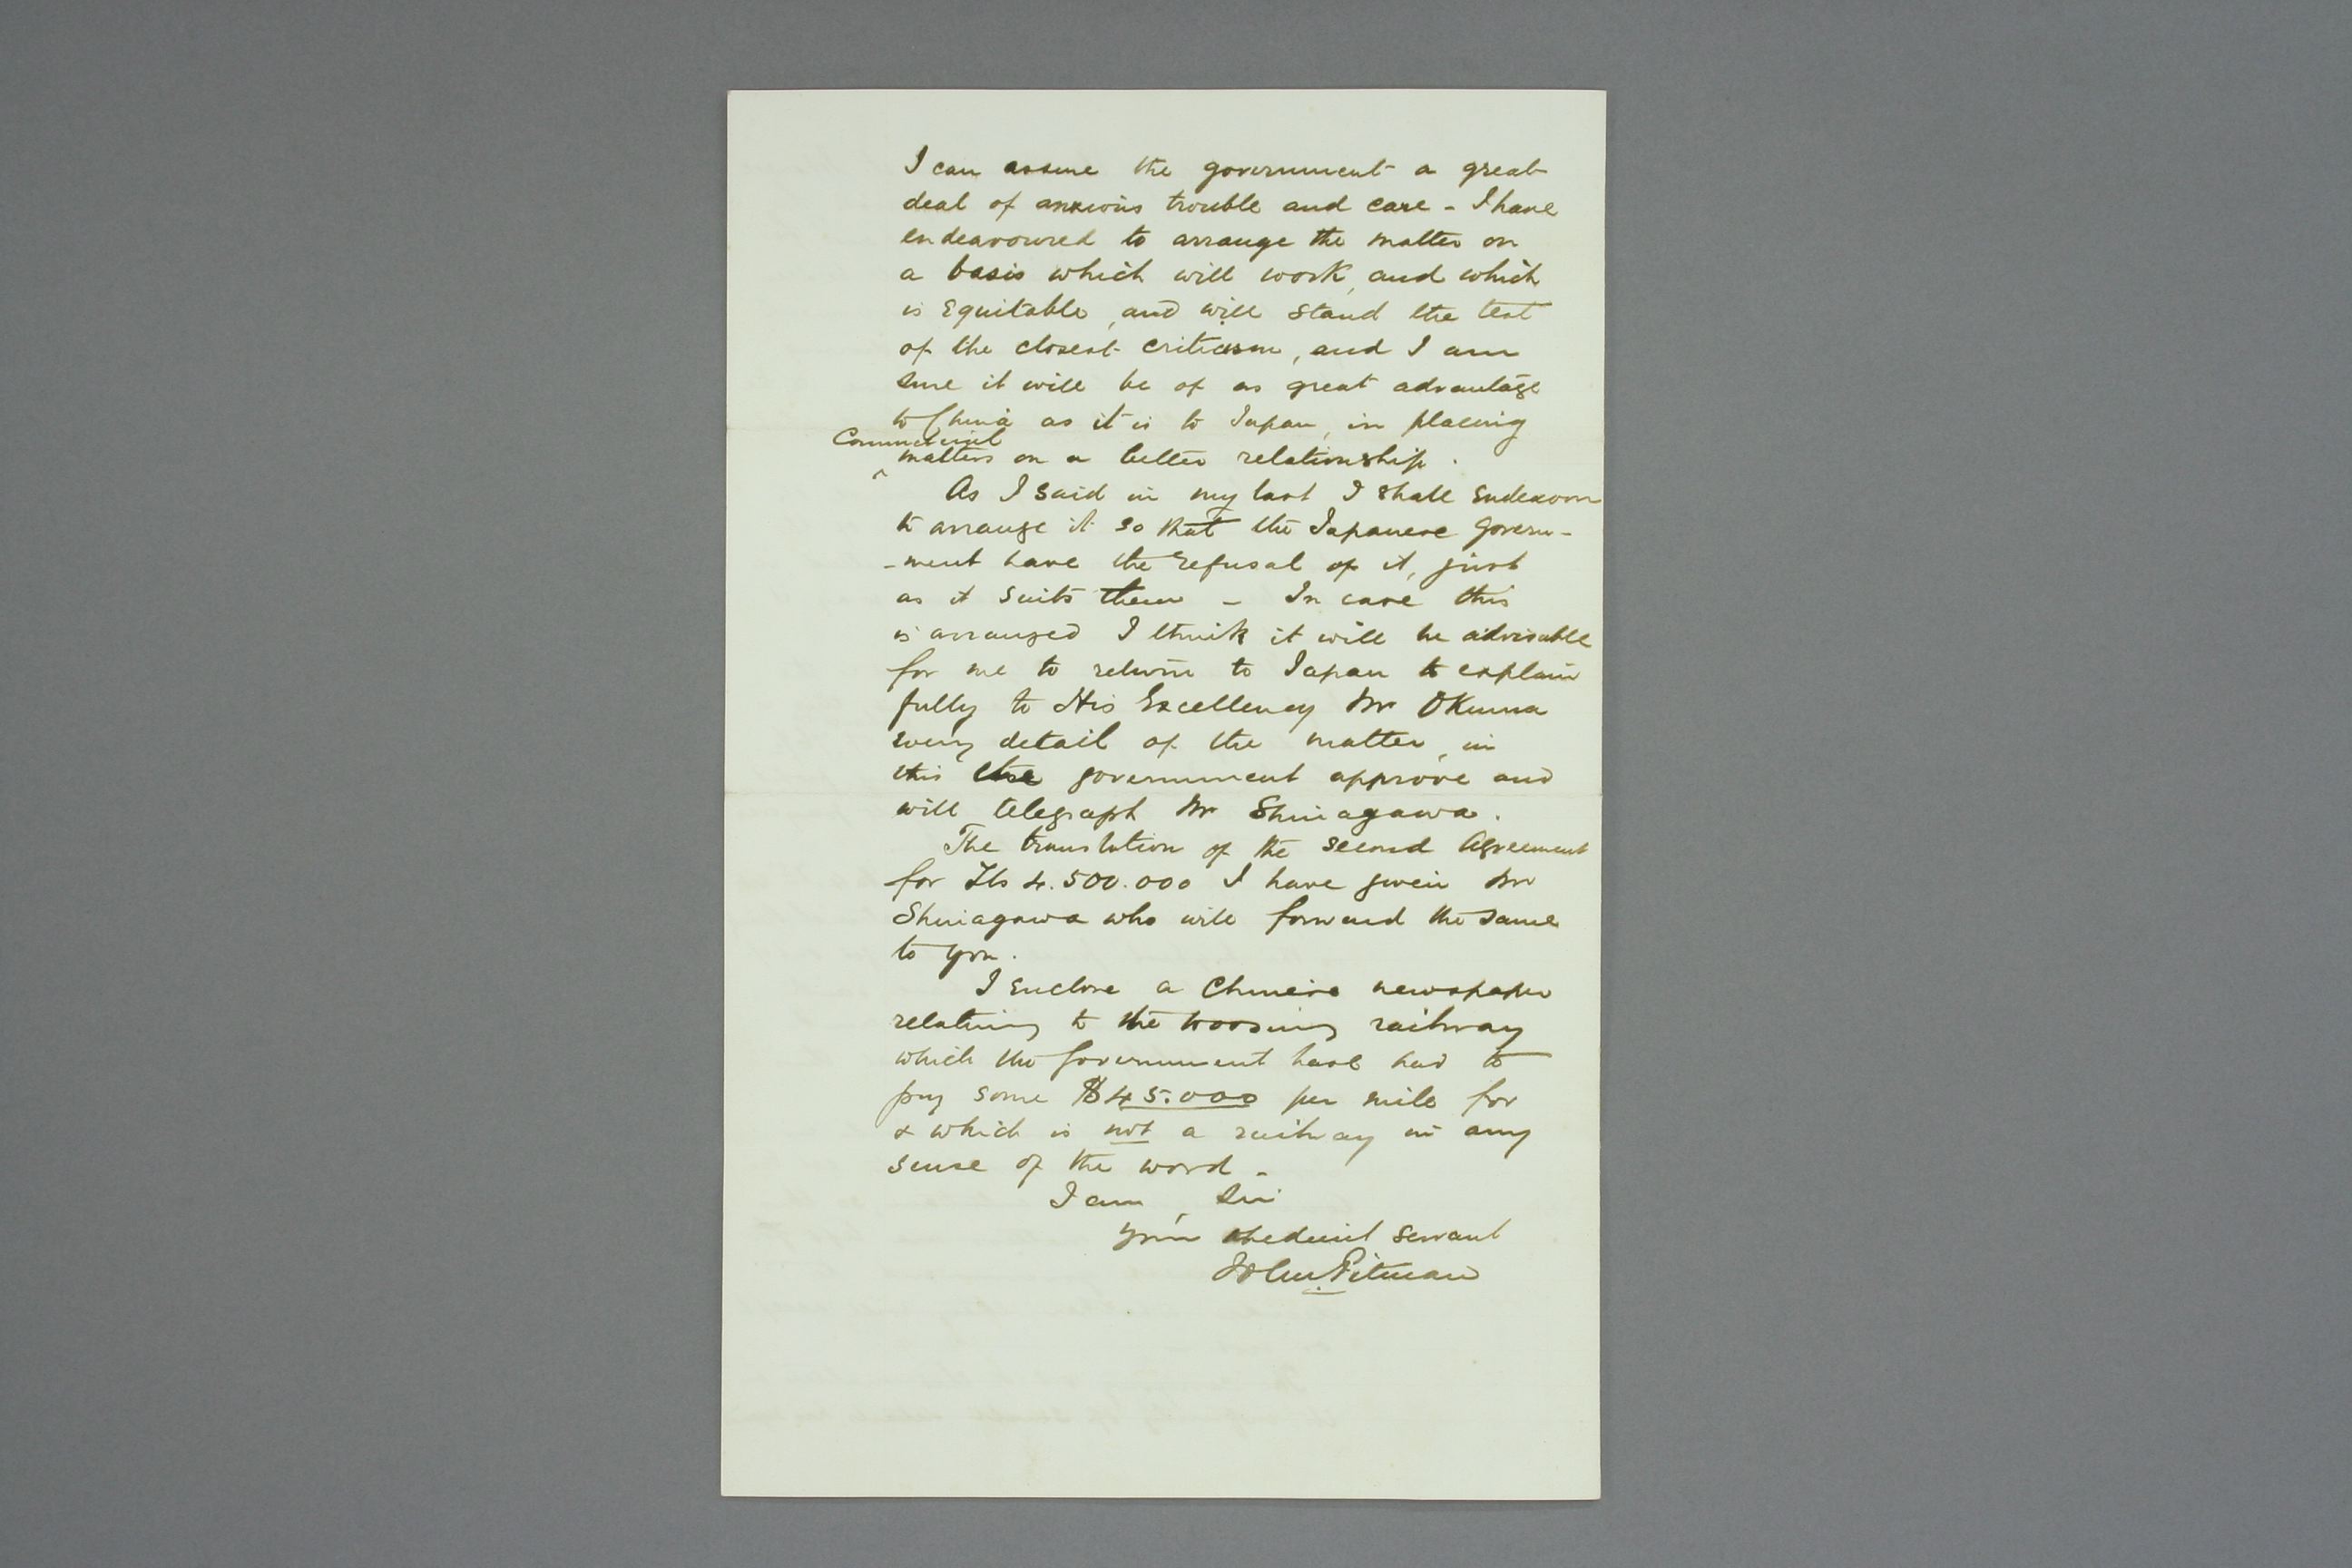 I can assure the government a great
deal of anxious trouble and care - I have
endeavoured to arrange the matter on
a basis which will work, and which
is equitable, and will stand the test
of the closest criticism, and I am
sure it will be of as great advantage
to China as it is to Japan, in placing
Commercial
^ matters on a better relationship.
As I said in my last I shall endeavour
to arrange it so that the Japanese govern-
-ment have the refusal of it, just
as it suits them - In case this
is arranged I think it will be advisable
for me to return to Japan to explain
fully to His Excellency Mr Okuma
every detail of the matter, in
this the government approve and
will telegraph Mr Shinagawa.
The translation of the second Agreement
for Tls 4.500.000 I have given Mr
Shinagawa who will forward the same
to you.
I enclose a Chinese newspaper
relating to the Woosung railway
which the Government have had to
pay some $45.000 per mile for
& which is not a railway in any
sense of the word -
I am, Sir
Your obedient servant
John Pitman